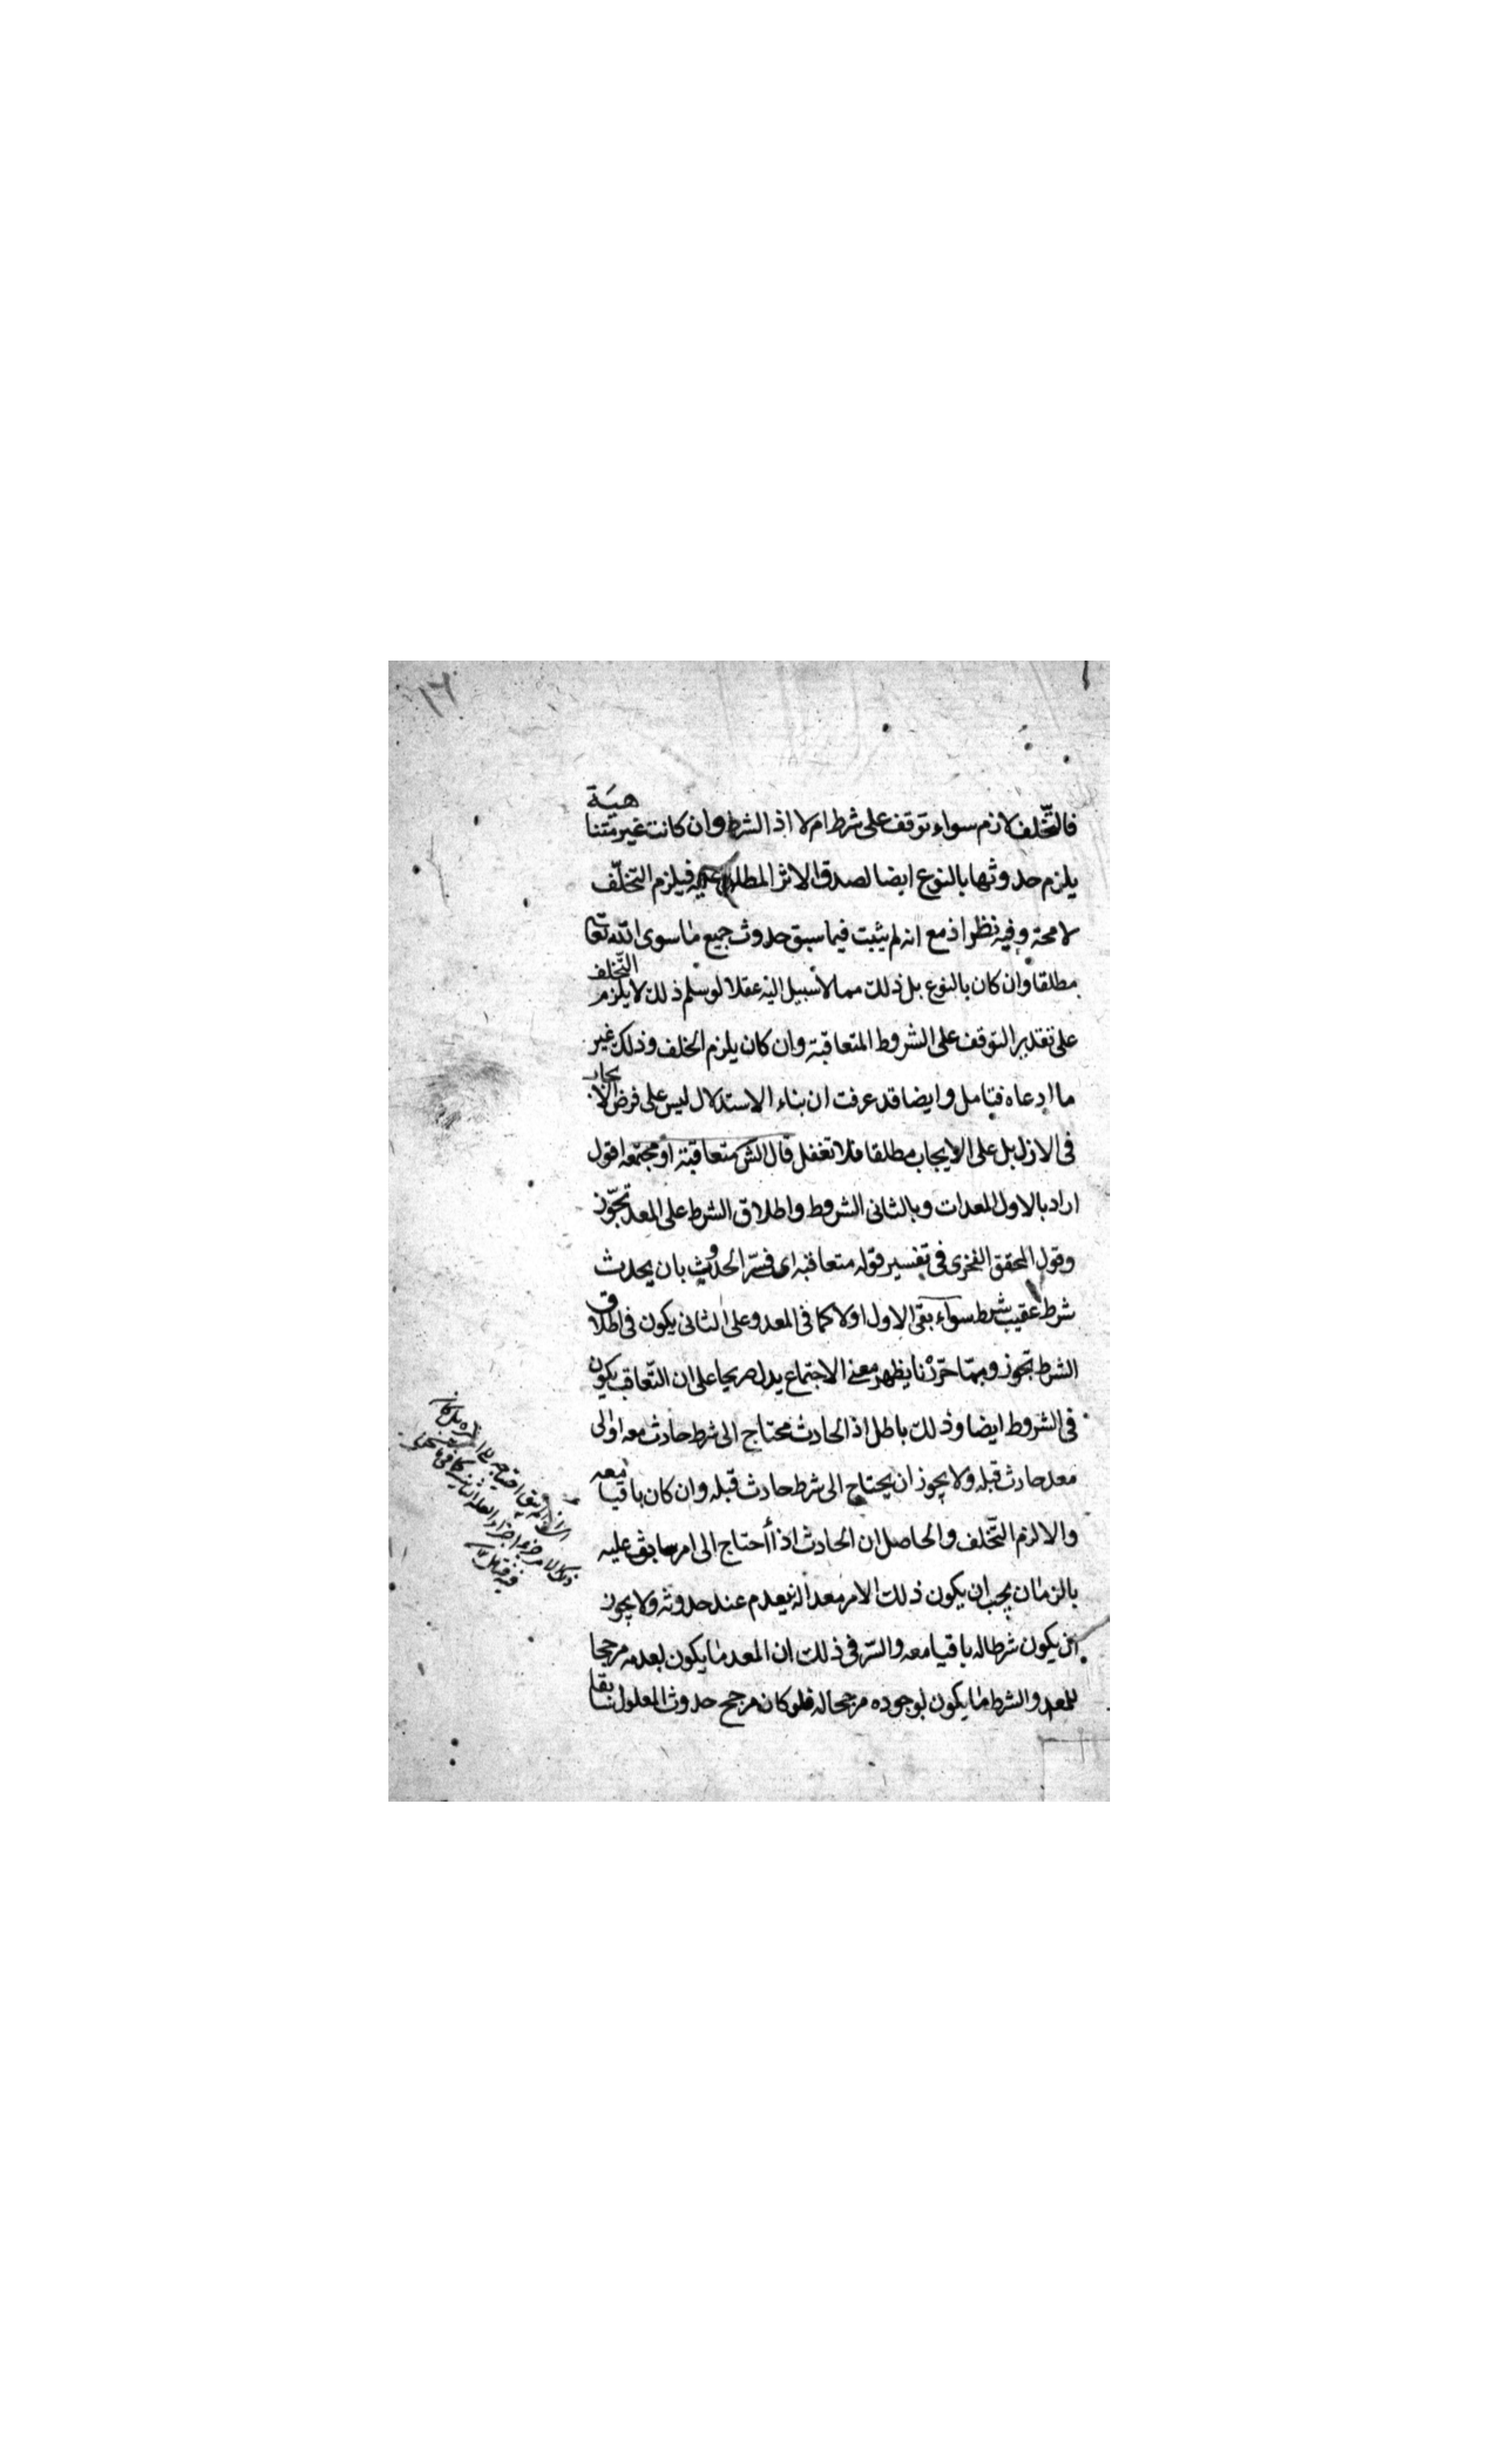 ١٦
فالتّخلف لازم سواء توقف على شرط ام لا اذ الشرط وان كانت غير متناهية
يلزم حدوثها بالنوع ايضا لصدق الاثر المطلق عليه فيلزم التخلّف
لا محة وفيه نظر اذ مع انه لم يثبت فيما سبق حدوث جميع ما سوى الله تعا
مطلقا وان كان بالنوع بل ذلك مما لا سبيل اليه عقلا لو سلم ذلك لا يلزم التّخلف
على تقدير التوقف على الشروط المتعاقبة وان كان يلزم الخلف وذلك غير
ما ادعاه فتامل وايضا قد عرفت ان بناء الاستدلال ليس على فرض الايجاب
فى الازل بل على الايجاب مطلقا فلا تغفل قال الش متعاقبة او مجتمعه اقول
اراد بالاول المعدات وبالثانى الشروط واطلاق الشرط على المعد تجوّز
وقول المحقق الفخرى فى تفسير قوله متعاقبه اى فسّر الحدوث بان يحدث
شرط عقيب شرط سواء بقى الاول اولا كما فى المعد وعلى الثانى يكون فى اطلاق
الشرط تجوز وبمّا حرّرنا يظهر معنى الاجتماع يدل صريحا على ان التّعاقب يكون
فى الشروط ايضا وذلك باطل اذ الحادث محتاج الى شرط حادث معه او الى
معد حادث قبله ولا يجوز ان يحتاج الى شرط حادث قبله وان كان باقيا معه
والا لزم التّخلف والحاصل ان الحادث اذا احتاج الى امر سابق عليه
بالزمان يجب ان يكون ذلك الامر معدا له ينعدم عند حدوثه ولا يجوز
ان يكون شرطا له باقيا معه والسّر فى ذلك ان المعد ما يكون بعدمه مرجحا
للمعد والشرط ما يكون لوجوده مرجحا له فلو كان مرجح حدوث المعلول سابقا